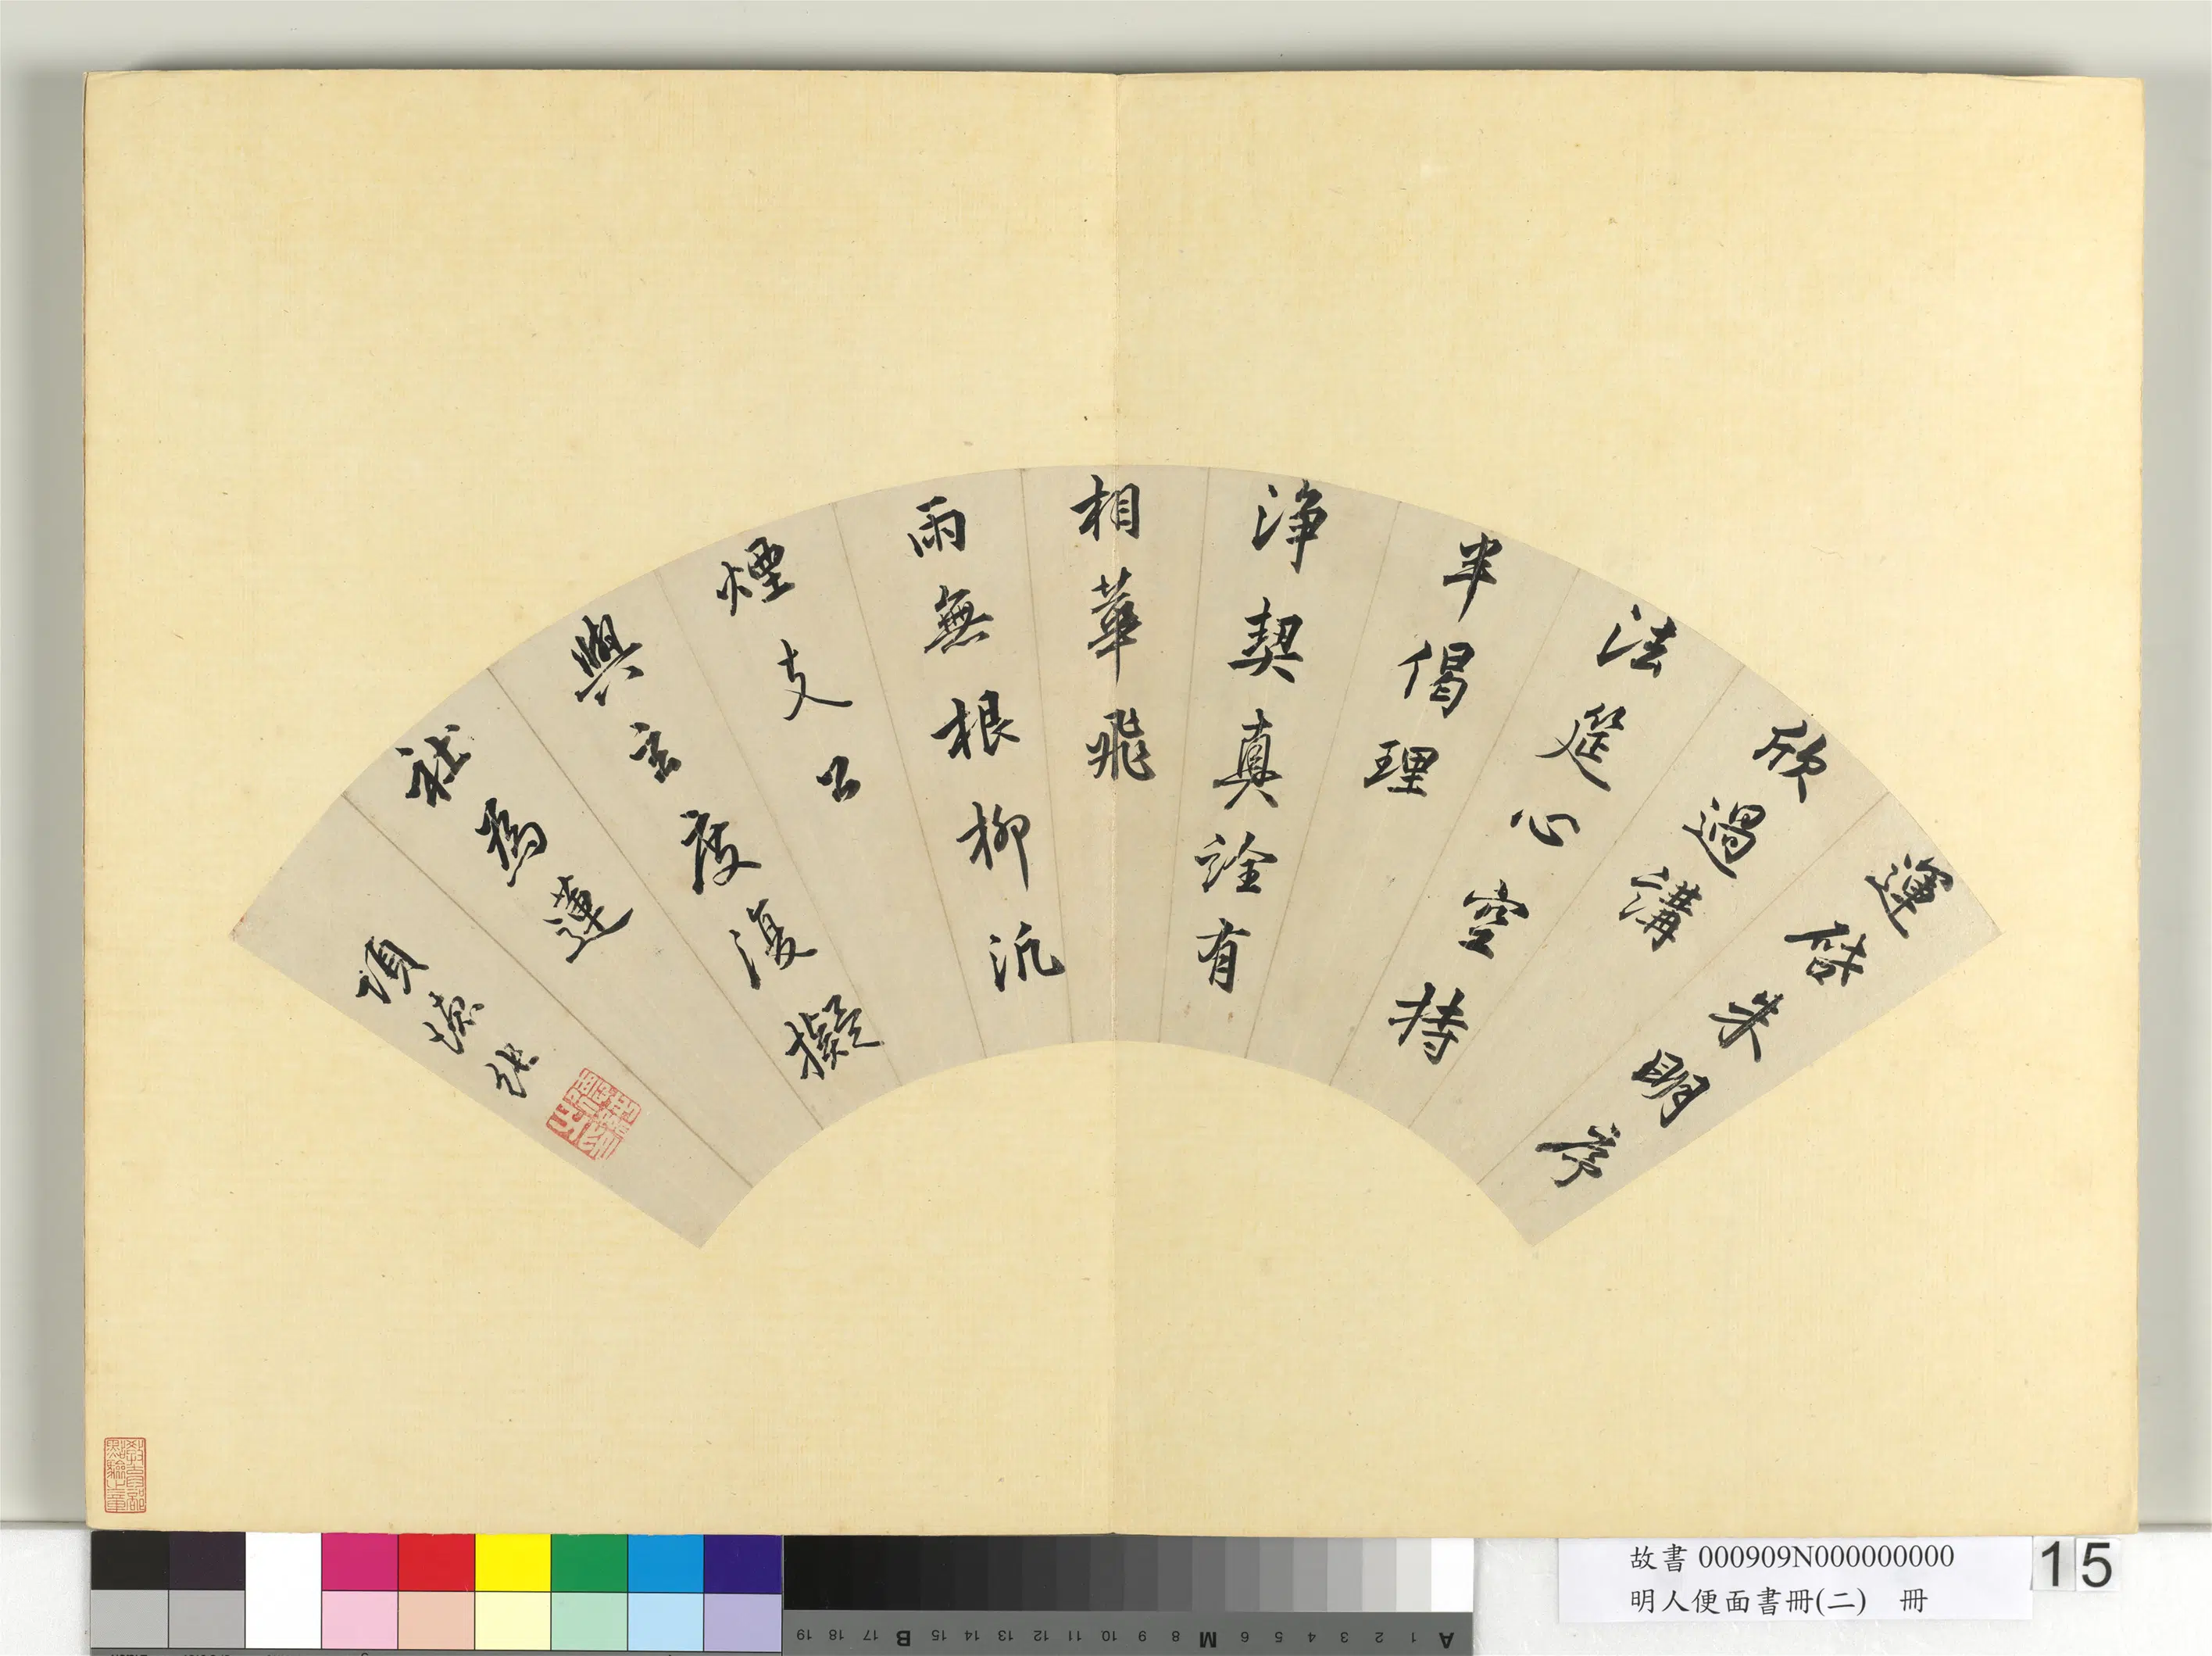 運啓朱明序
欣過講
法筵心空持
半偈理
淨契真詮有
相華飛
雨無根柳沉
煙支公
與玄度復擬
社為蓮
項
故書 000909N000000000
明人便面書冊(二) 冊
15
A 1 2 3 4 5 6 M 8 9 10 11 12 13 14 15 B 17 18 19